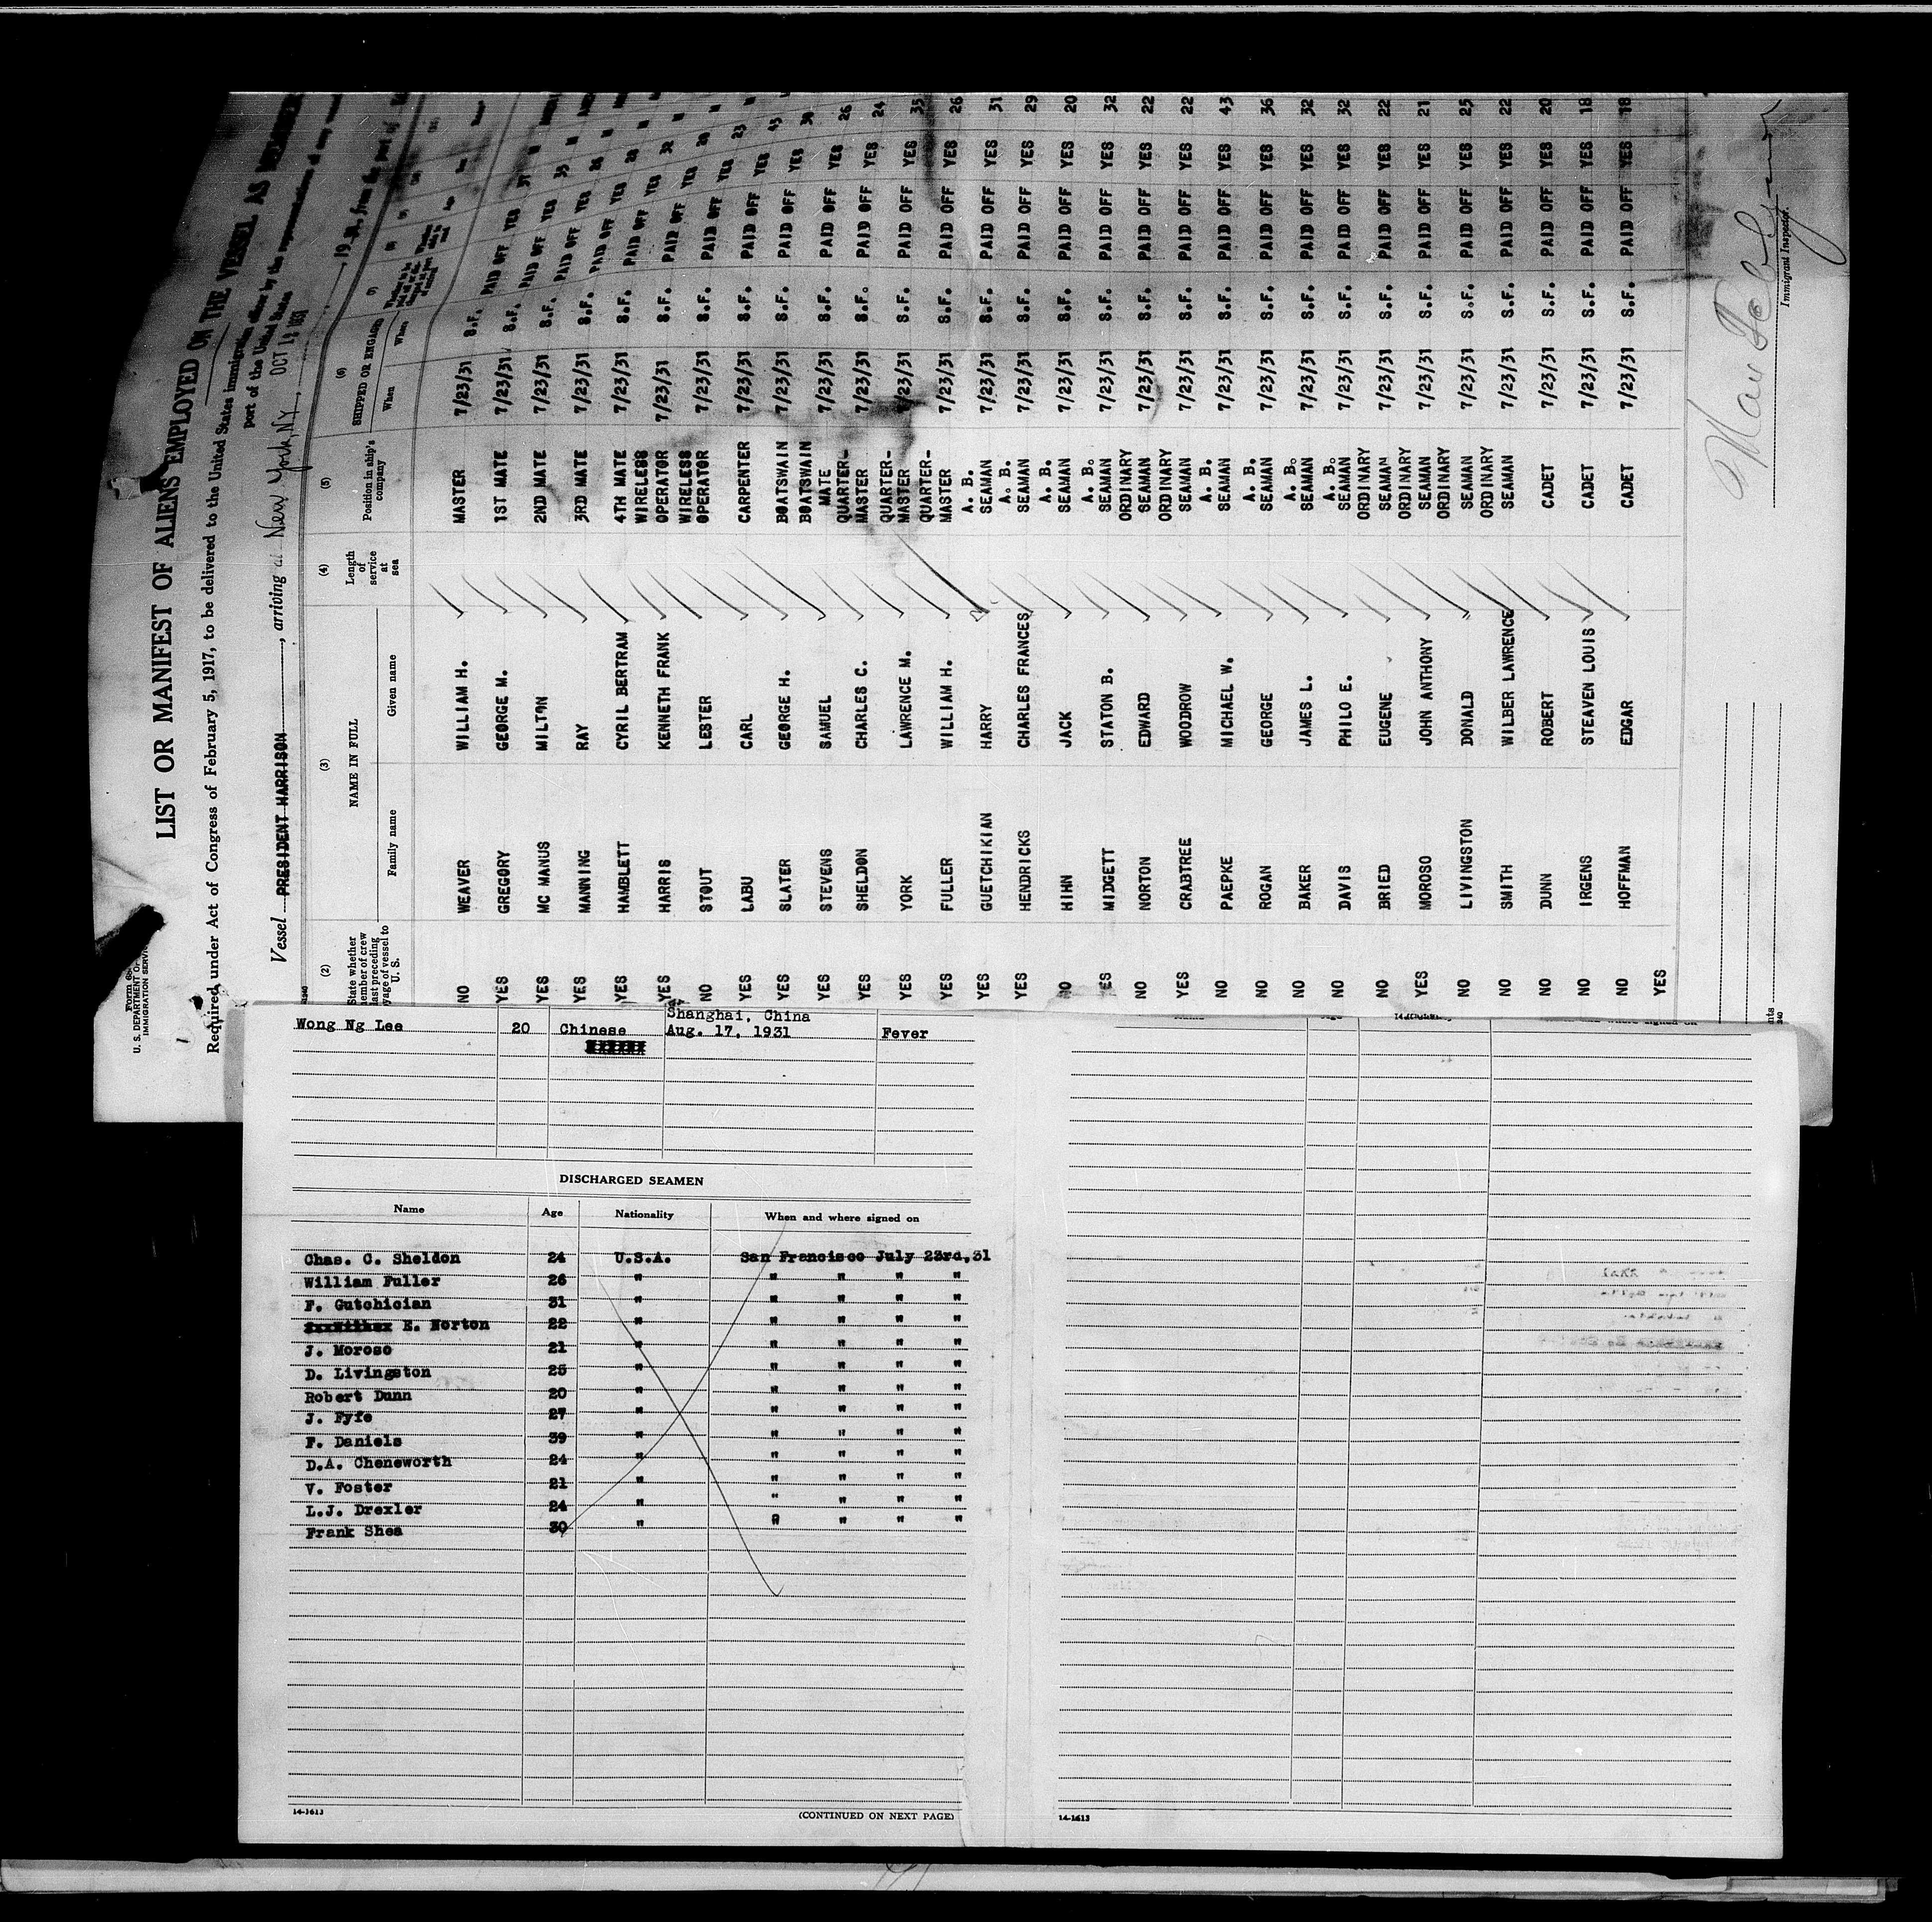 LIST OR MANIFEST OF ALIENS EMPLOYED ON THE VESSEL AS
Required under Act of Congress of February 5, 1917, to be delivered to the United States immigration officer by the representatives of any vessel
port of the United States
Vessel PRESIDENT HARRISON, arriving at New York, N.Y., OCT 1931, 19, from the port of
U. S. DEPARTMENT OF
IMMIGRATION SERVICE
(2) (3) (4) (5) (6) (7)
State whether member of crew last preceding voyage of vessel to U. S.
NAME IN FULL
Family name Given name
Length of service at sea
Position in ship's company
SHIPPED OR ENGAGED
When Where
NO WEAVER WILLIAM H. MASTER 7/23/31 S.F. PAID OFF YES 37
YES GREGORY GEORGE M. 1ST MATE 7/23/31 S.F. PAID OFF YES 35
YES MC MANUS MILTON 2ND MATE 7/23/31 S.F. PAID OFF YES 26
YES MANNING RAY 3RD MATE 7/23/31 S.F. PAID OFF YES 28
YES HAMBLETT CYRIL BERTRAM 4TH MATE 7/23/31 S.F. PAID OFF YES 32
YES HARRIS KENNETH FRANK WIRELESS OPERATOR 7/23/31 S.F. PAID OFF YES 20
NO STOUT LESTER WIRELESS OPERATOR 7/23/31 S.F. PAID OFF YES 23
YES LABU CARL CARPENTER 7/23/31 S.F. PAID OFF YES 43
YES SLATER GEORGE H. BOATSWAIN 7/23/31 S.F. PAID OFF YES 30
YES STEVENS SAMUEL BOATSWAIN MATE 7/23/31 S.F. PAID OFF YES 26
YES SHELDON CHARLES C. QUARTER-MASTER 7/23/31 S.F. PAID OFF YES 24
YES YORK LAWRENCE M. QUARTER-MASTER 7/23/31 S.F. PAID OFF YES 35
YES FULLER WILLIAM H. QUARTER-MASTER 7/23/31 S.F. PAID OFF YES 26
YES GUETCHIKIAN HARRY A. B. SEAMAN 7/23/31 S.F. PAID OFF YES 31
YES HENDRICKS CHARLES FRANCES A. B. SEAMAN 7/23/31 S.F. PAID OFF YES 29
NO HIHN JACK A. B. SEAMAN 7/23/31 S.F. PAID OFF YES 20
YES MIDGETT STATON B. A. B. SEAMAN 7/23/31 S.F. PAID OFF YES 32
NO NORTON EDWARD ORDINARY SEAMAN 7/23/31 S.F. PAID OFF YES 22
YES CRABTREE WOODROW ORDINARY SEAMAN 7/23/31 S.F. PAID OFF YES 22
NO PAEPKE MICHAEL W. A. B. SEAMAN 7/23/31 S.F. PAID OFF YES 43
NO ROGAN GEORGE A. B. SEAMAN 7/23/31 S.F. PAID OFF YES 36
NO BAKER JAMES L. A. B. SEAMAN 7/23/31 S.F. PAID OFF YES 32
NO DAVIS PHILO E. A. B. SEAMAN 7/23/31 S.F. PAID OFF YES 32
NO BRIED EUGENE ORDINARY SEAMAN 7/23/31 S.F. PAID OFF YES 22
YES MOROSO JOHN ANTHONY ORDINARY SEAMAN 7/23/31 S.F. PAID OFF YES 21
NO LIVINGSTON DONALD ORDINARY SEAMAN 7/23/31 S.F. PAID OFF YES 25
NO SMITH WILBER LAWRENCE ORDINARY SEAMAN 7/23/31 S.F. PAID OFF YES 22
NO DUNN ROBERT CADET 7/23/31 S.F. PAID OFF YES 20
NO IRGENS STEAVEN LOUIS CADET 7/23/31 S.F. PAID OFF YES 18
NO HOFFMAN EDGAR CADET 7/23/31 S.F. PAID OFF YES 18
YES
Immigrant Inspector.
Wong Ng Lee 20 Chinese Shanghai, China Aug. 17, 1931 Fever
DISCHARGED SEAMEN
Name Age Nationality When and where signed on
Chas. C. Sheldon 24 U.S.A. San Francisco July 23rd,31
William Fuller 26 " " " " "
F. Gutchician 31 " " " " "
E. Norton 22 " " " " "
J. Moroso 21 " " " " "
D. Livingston 25 " " " " "
Robert Dunn 20 " " " " "
J. Fyfe 27 " " " " "
F. Daniels 39 " " " " "
D.A. Cheneworth 24 " " " " "
V. Foster 21 " " " " "
L.J. Drexler 24 " " " " "
Frank Shea 30 " " " " "
14-1613 (CONTINUED ON NEXT PAGE)
14-1613